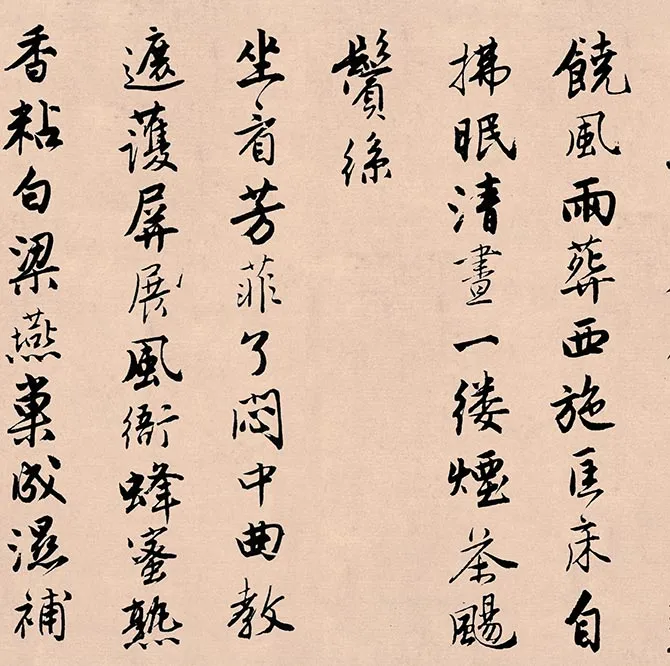 饒風雨葬西施匡床自
拂眠清晝一縷煙茶颺
鬢絲
坐看芳菲了悶中曲教
遮護屏展風衙蜂蜜熟
香粘白梁燕巢成濕補